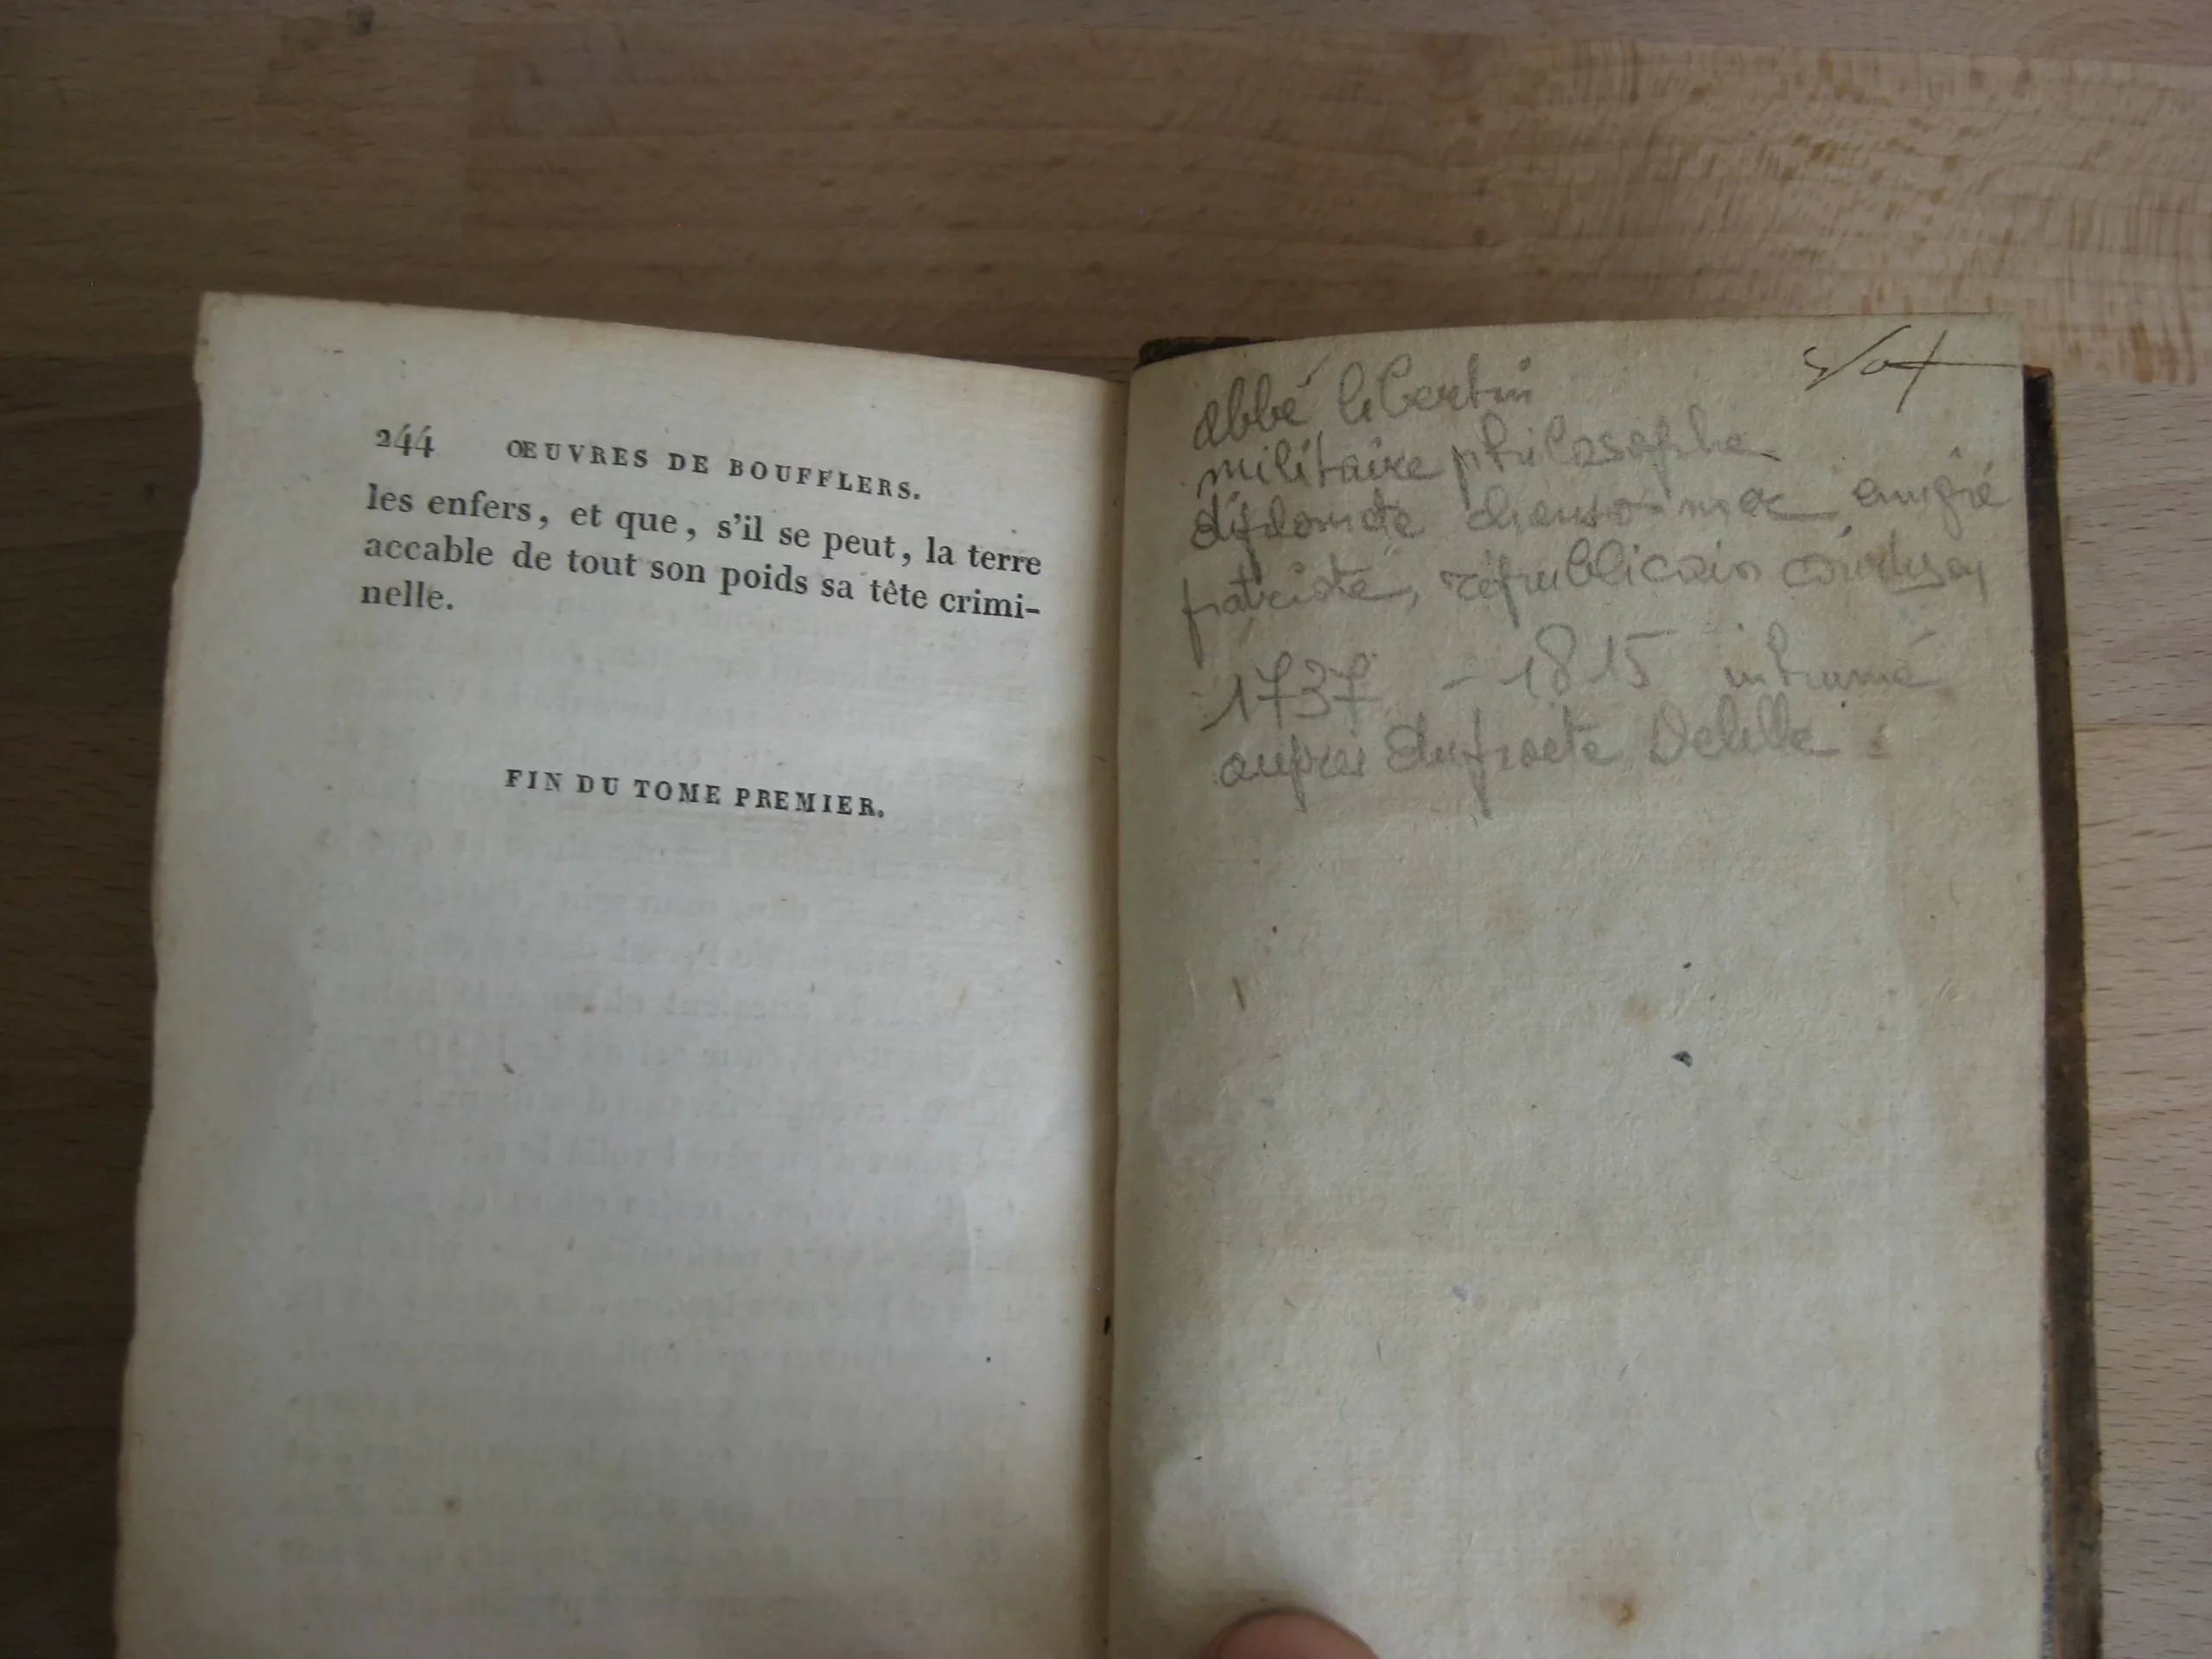 244 ŒUVRES DE BOUFFLERS.
les enfers, et que, s'il se peut, la terre
accable de tout son poids sa tête crimi-
nelle.
FIN DU TOME PREMIER.
abbé libertin
militaire philosophe
diplomate chansonnier émigré
patriote, républicain courtisan
1737 - 1815 inhumé
auprès du poète Delille